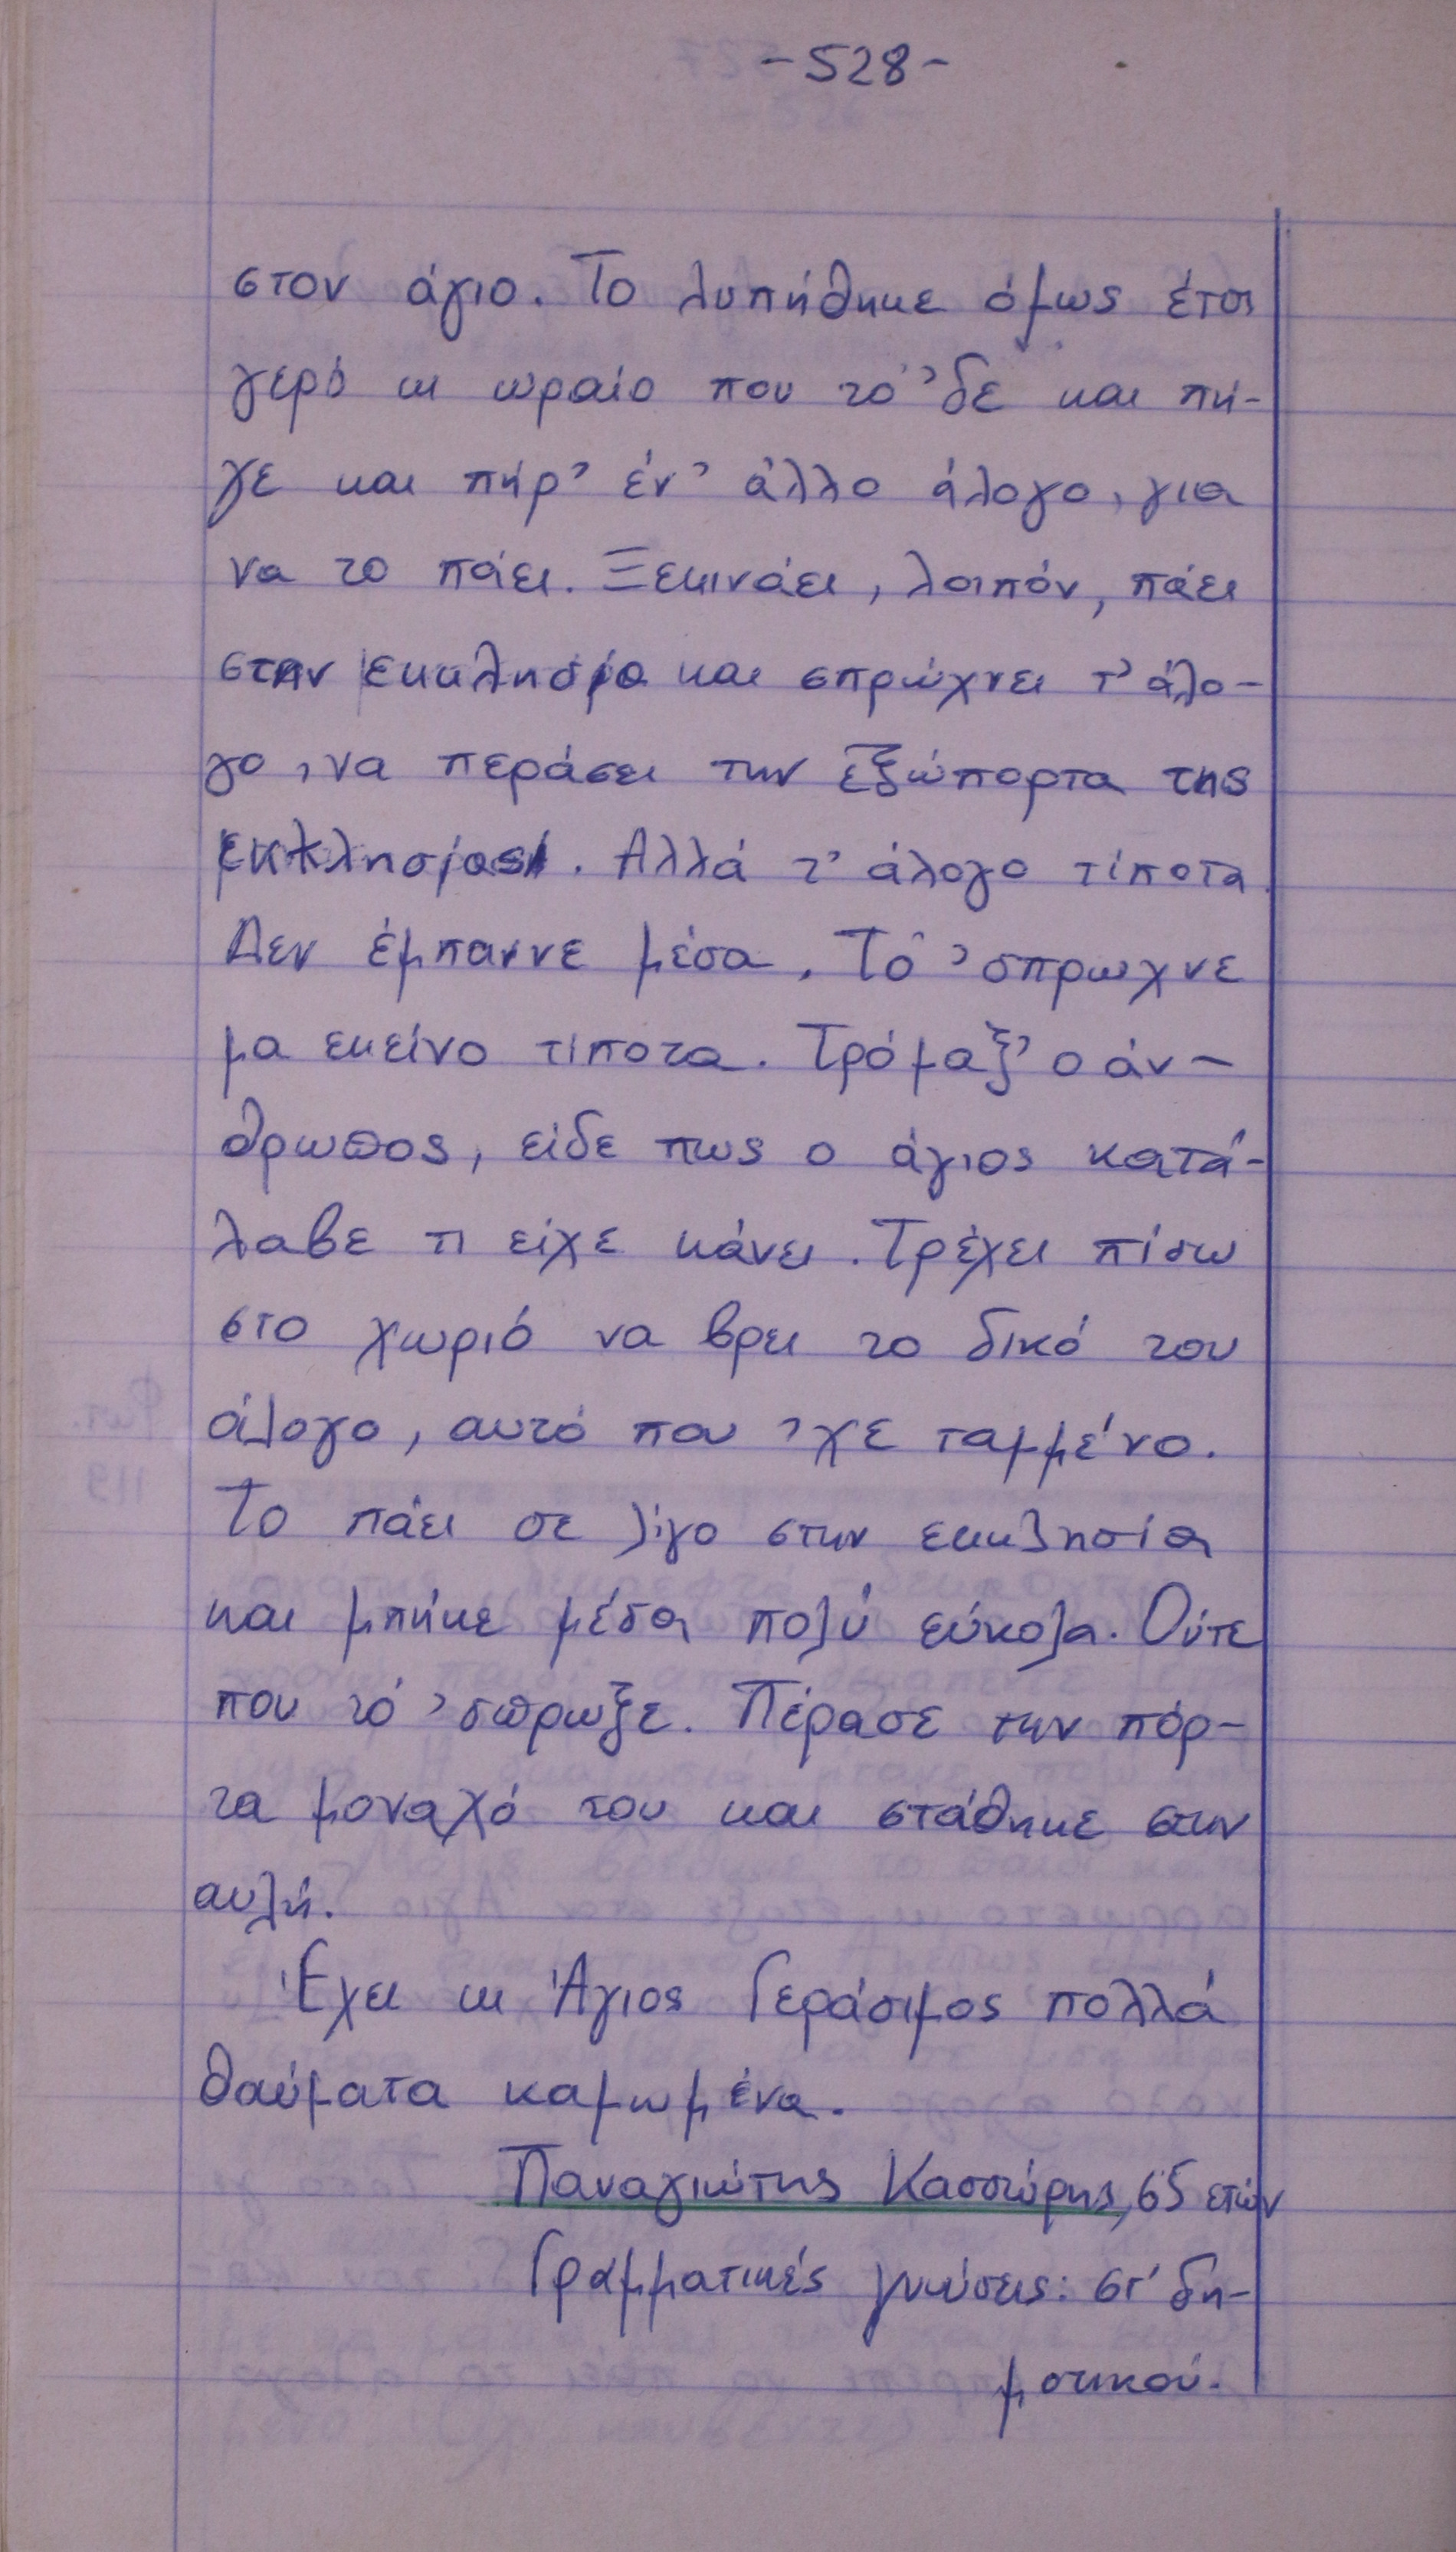 -528-
στον άγιο. Το λυπήθηκε όμως έτσι
γερό κι ωραίο που τό 'δε και πή-
γε και πήρ' έν' άλλο άλογο, για
να το πάει. Ξεκινάει, λοιπόν, πάει
στην εκκλησία και σπρώχνει τ' άλο-
γο, να περάσει την εξώπορτα της
εκκλησίας. Αλλά τ' άλογο τίποτα.
Δεν έμπαινε μέσα. Τό 'σπρωχνε
μα εκείνο τίποτα. Τρόμαξ' ο άν-
θρωπος, είδε πως ο άγιος κατά-
λαβε τι είχε κάνει. Τρέχει πίσω
στο χωριό να βρει το δικό του
άλογο, αυτό που 'χε ταμμένο.
Το πάει σε λίγο στην εκκλησία
και μπήκε μέσα πολύ εύκολα. Ούτε
που τό 'σπρωξε. Πέρασε την πόρ-
τα μοναχό του και στάθηκε στην
αυλή.
Έχει κι Άγιος Γεράσιμος πολλά
θαύματα καμωμένα.
Παναγιώτης Κασσώρης, 65 ετών
Γραμματικές γνώσεις: στ' δη-
μοτικού.